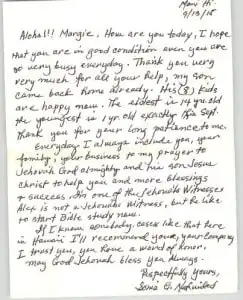 Maui Hi.
9/13/18
Aloha!!! Margie, How are you today, I hope
that you are in good condition even you are
so very busy everyday. Thank you very
very much for all your help, my son
came back home already. His (8) kids
are happy now. The oldest is 14 yrs old
the youngest is 1 yr old exactly this Sept.
Thank you for your long patience to me.
Everyday I always include you, your
family, your business to my prayer to
Jehovah God almighty and his son Jesus
Christ to help you and more blessings
& success. Am one of the Jehovah Witnesses
Alex is not a Jehovah's Witness, but he like
to start Bible study now.
If I know somebody, cases like that here
in Hawaii I'll recommend you, your Company
I trust you, you have a word of honor.
may God Jehovah bless you always.
Respectfully yours,